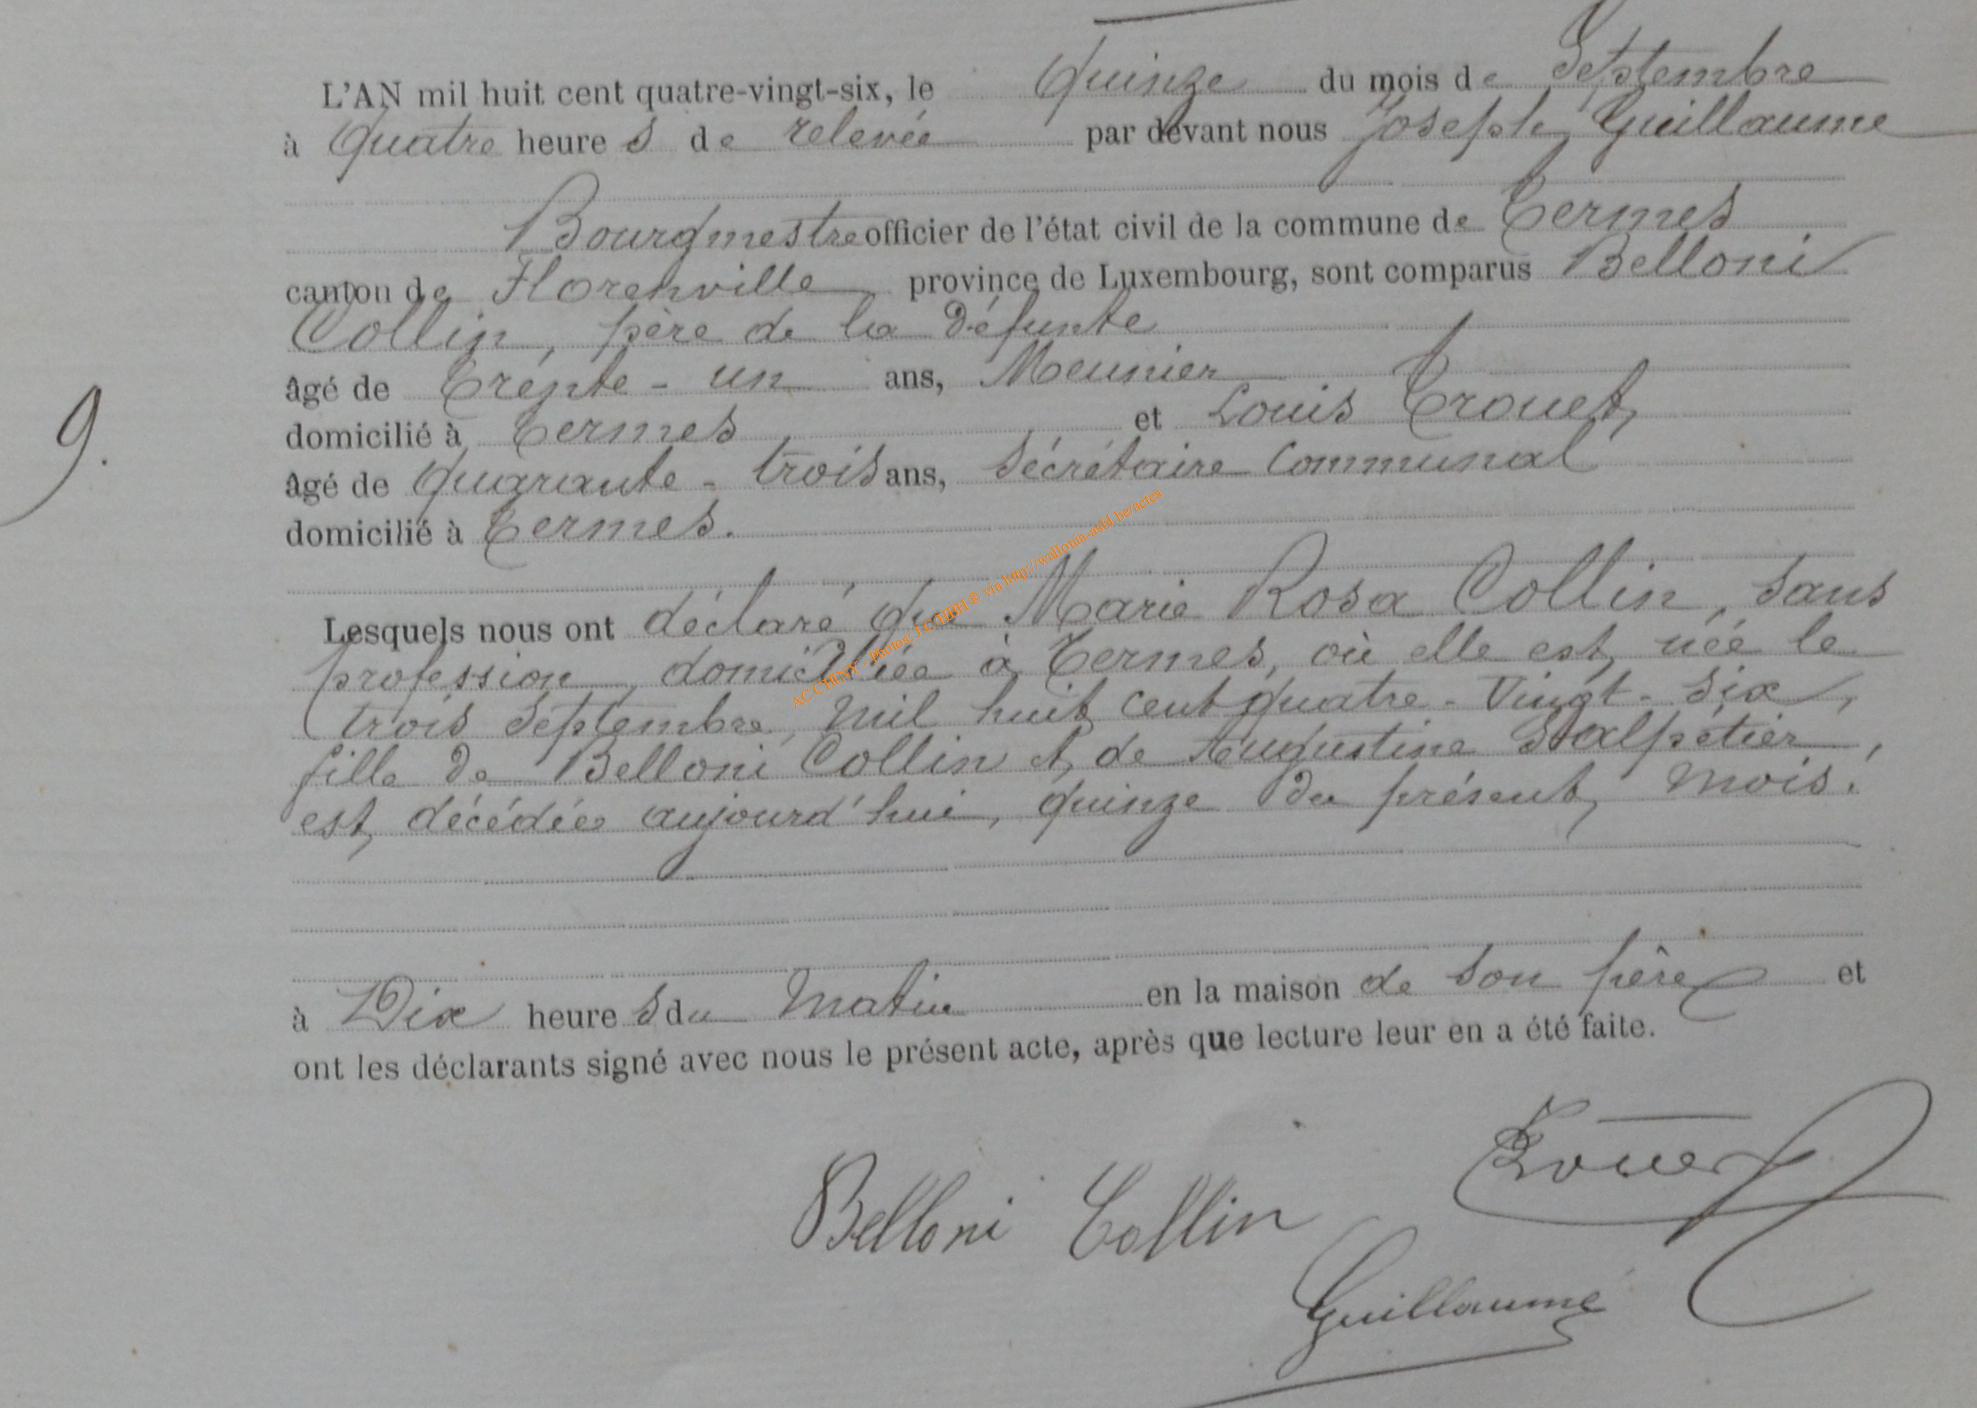 L'AN mil huit cent quatre-vingt-six, le Quinze du mois de Septembre
à Quatre heures de relevée par devant nous Joseph Guillaume
Bourgmestre officier de l'état civil de la commune de Termes
canton de Florenville province de Luxembourg, sont comparus Belloni
Collin, père de la défunte
âgé de Trente-un ans, Meunier
domicilié à Termes et Louis Trouet,
âgé de Quarante-trois ans, Sécrétaire Communal
domicilié à Termes.
9.
Lesquels nous ont déclaré que Marie Rosa Collin, sans
profession, domiciliée à Termes, où elle est née le
trois Septembre, mil huit cent quatre-Vingt-six,
fille de Belloni Collin et de Augustine Salpétier,
est décédée aujourd'hui, quinze du présent Mois.
à Dix heures du Matin en la maison de son père et
ont les déclarants signé avec nous le présent acte, après que lecture leur en a été faite.
Trouet
Belloni Collin
Guillaume